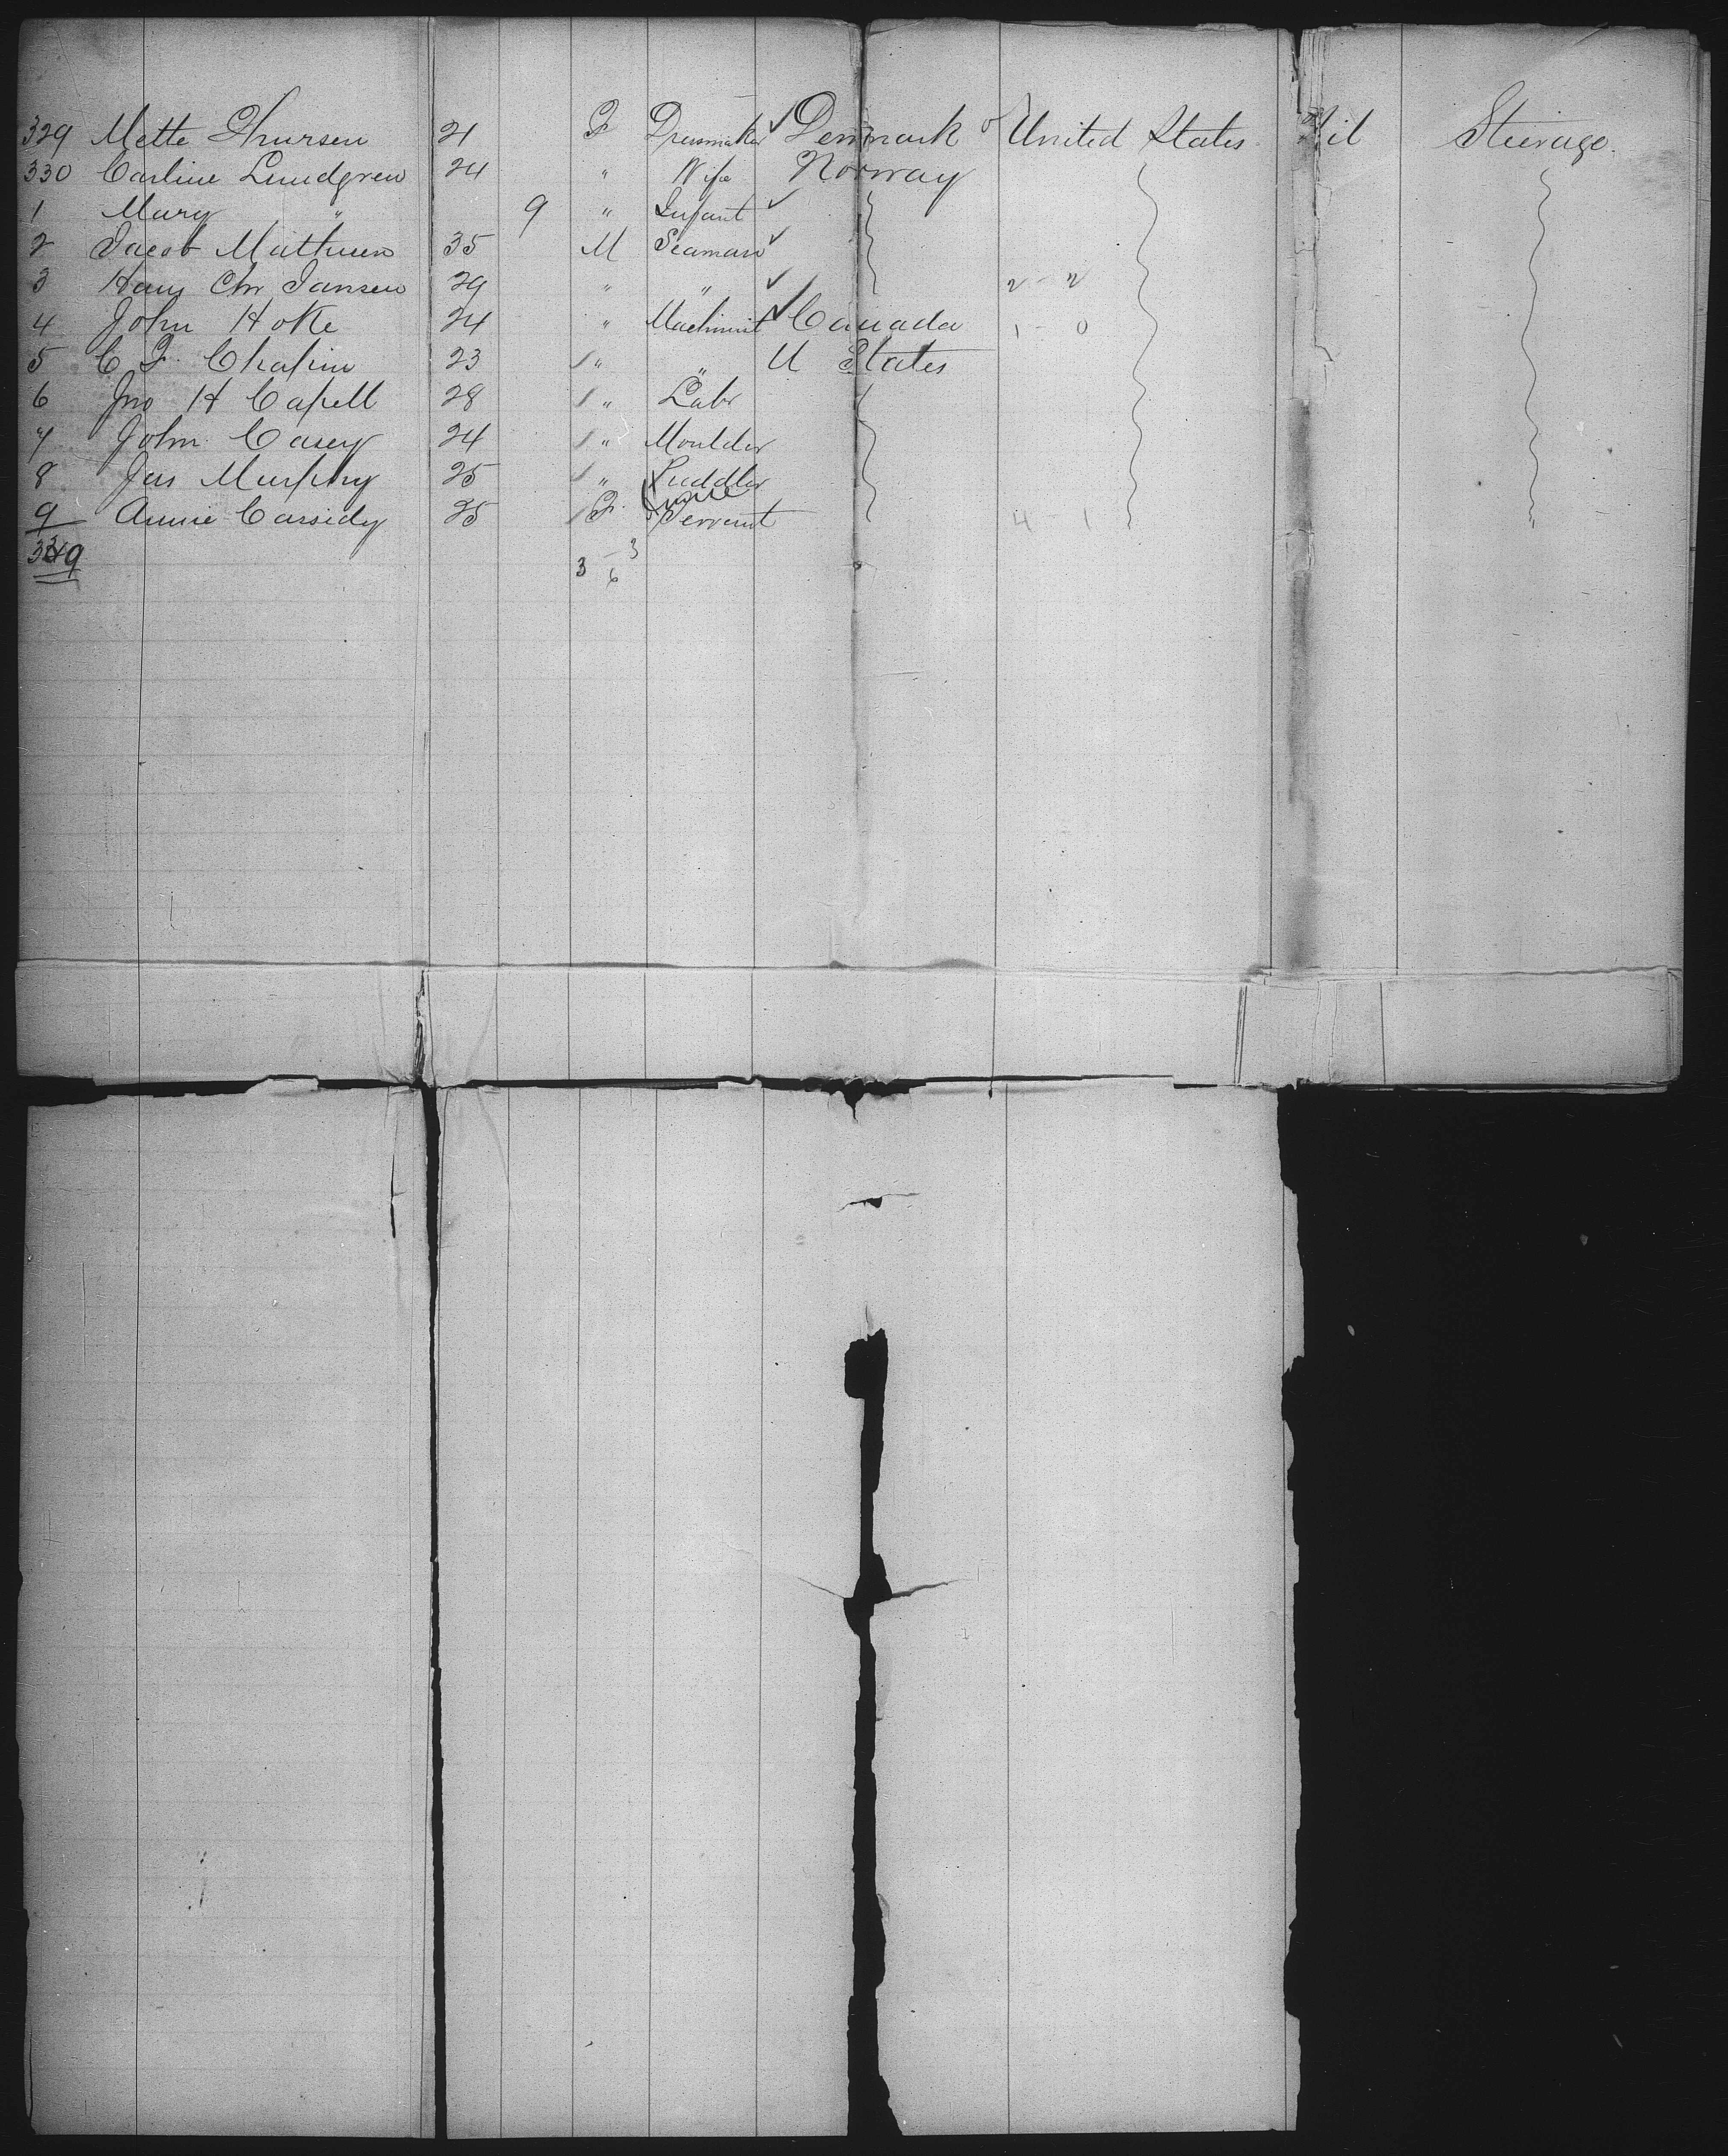 329 Mette Thursen 21 F Dressmaker ✓ Denmark United States Nil Steerage.
330 Carline Lundgren 24 " Wife Norway
1 Mary " 9 " Infant ✓
2 Jacob Mathisen 35 M Seaman ✓
3 Hans Chr Jansen 29 " " ✓ 2 - 2
4 John Hoke 24 " Machinist ✓ Canada 1 - 0
5 C F. Chapin 23 " " U States
6 Jno H Capell 28 " Labr
7 John Casey 24 " Moulder
8 Jas Murphy 25 " Puddler
9 Annie Cassidy 25 F. Servant 4 - 1 "
339
3 - 3
6